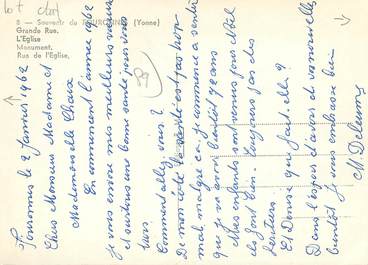 lot
8 - Souvenir de FOURONNES (Yonne)
Grande Rue.
L'Eglise
Monument.
Rue de l'Eglise.
89
Fouronnes le 2 Janvier 1962
Chers Monsieur Madame et
Mademoiselle Chaix
En commençant l'année 1962
Je vous envoie mes meilleurs vœux
et surtout une bonne santé pour vous
tous.
Comment allez vous ?
De mon côté la santé est pas trop
mal malgré ça je commence à sentir
que je va avoir bientôt ans
Mes enfants sont venus pour Noël
ils font bien. Toujours pas des
héritiers.
Et Denise que fait-elle ?
Dans l'espoir d'avoir de vos nouvelles
bientôt je vous embrasse bien
M.